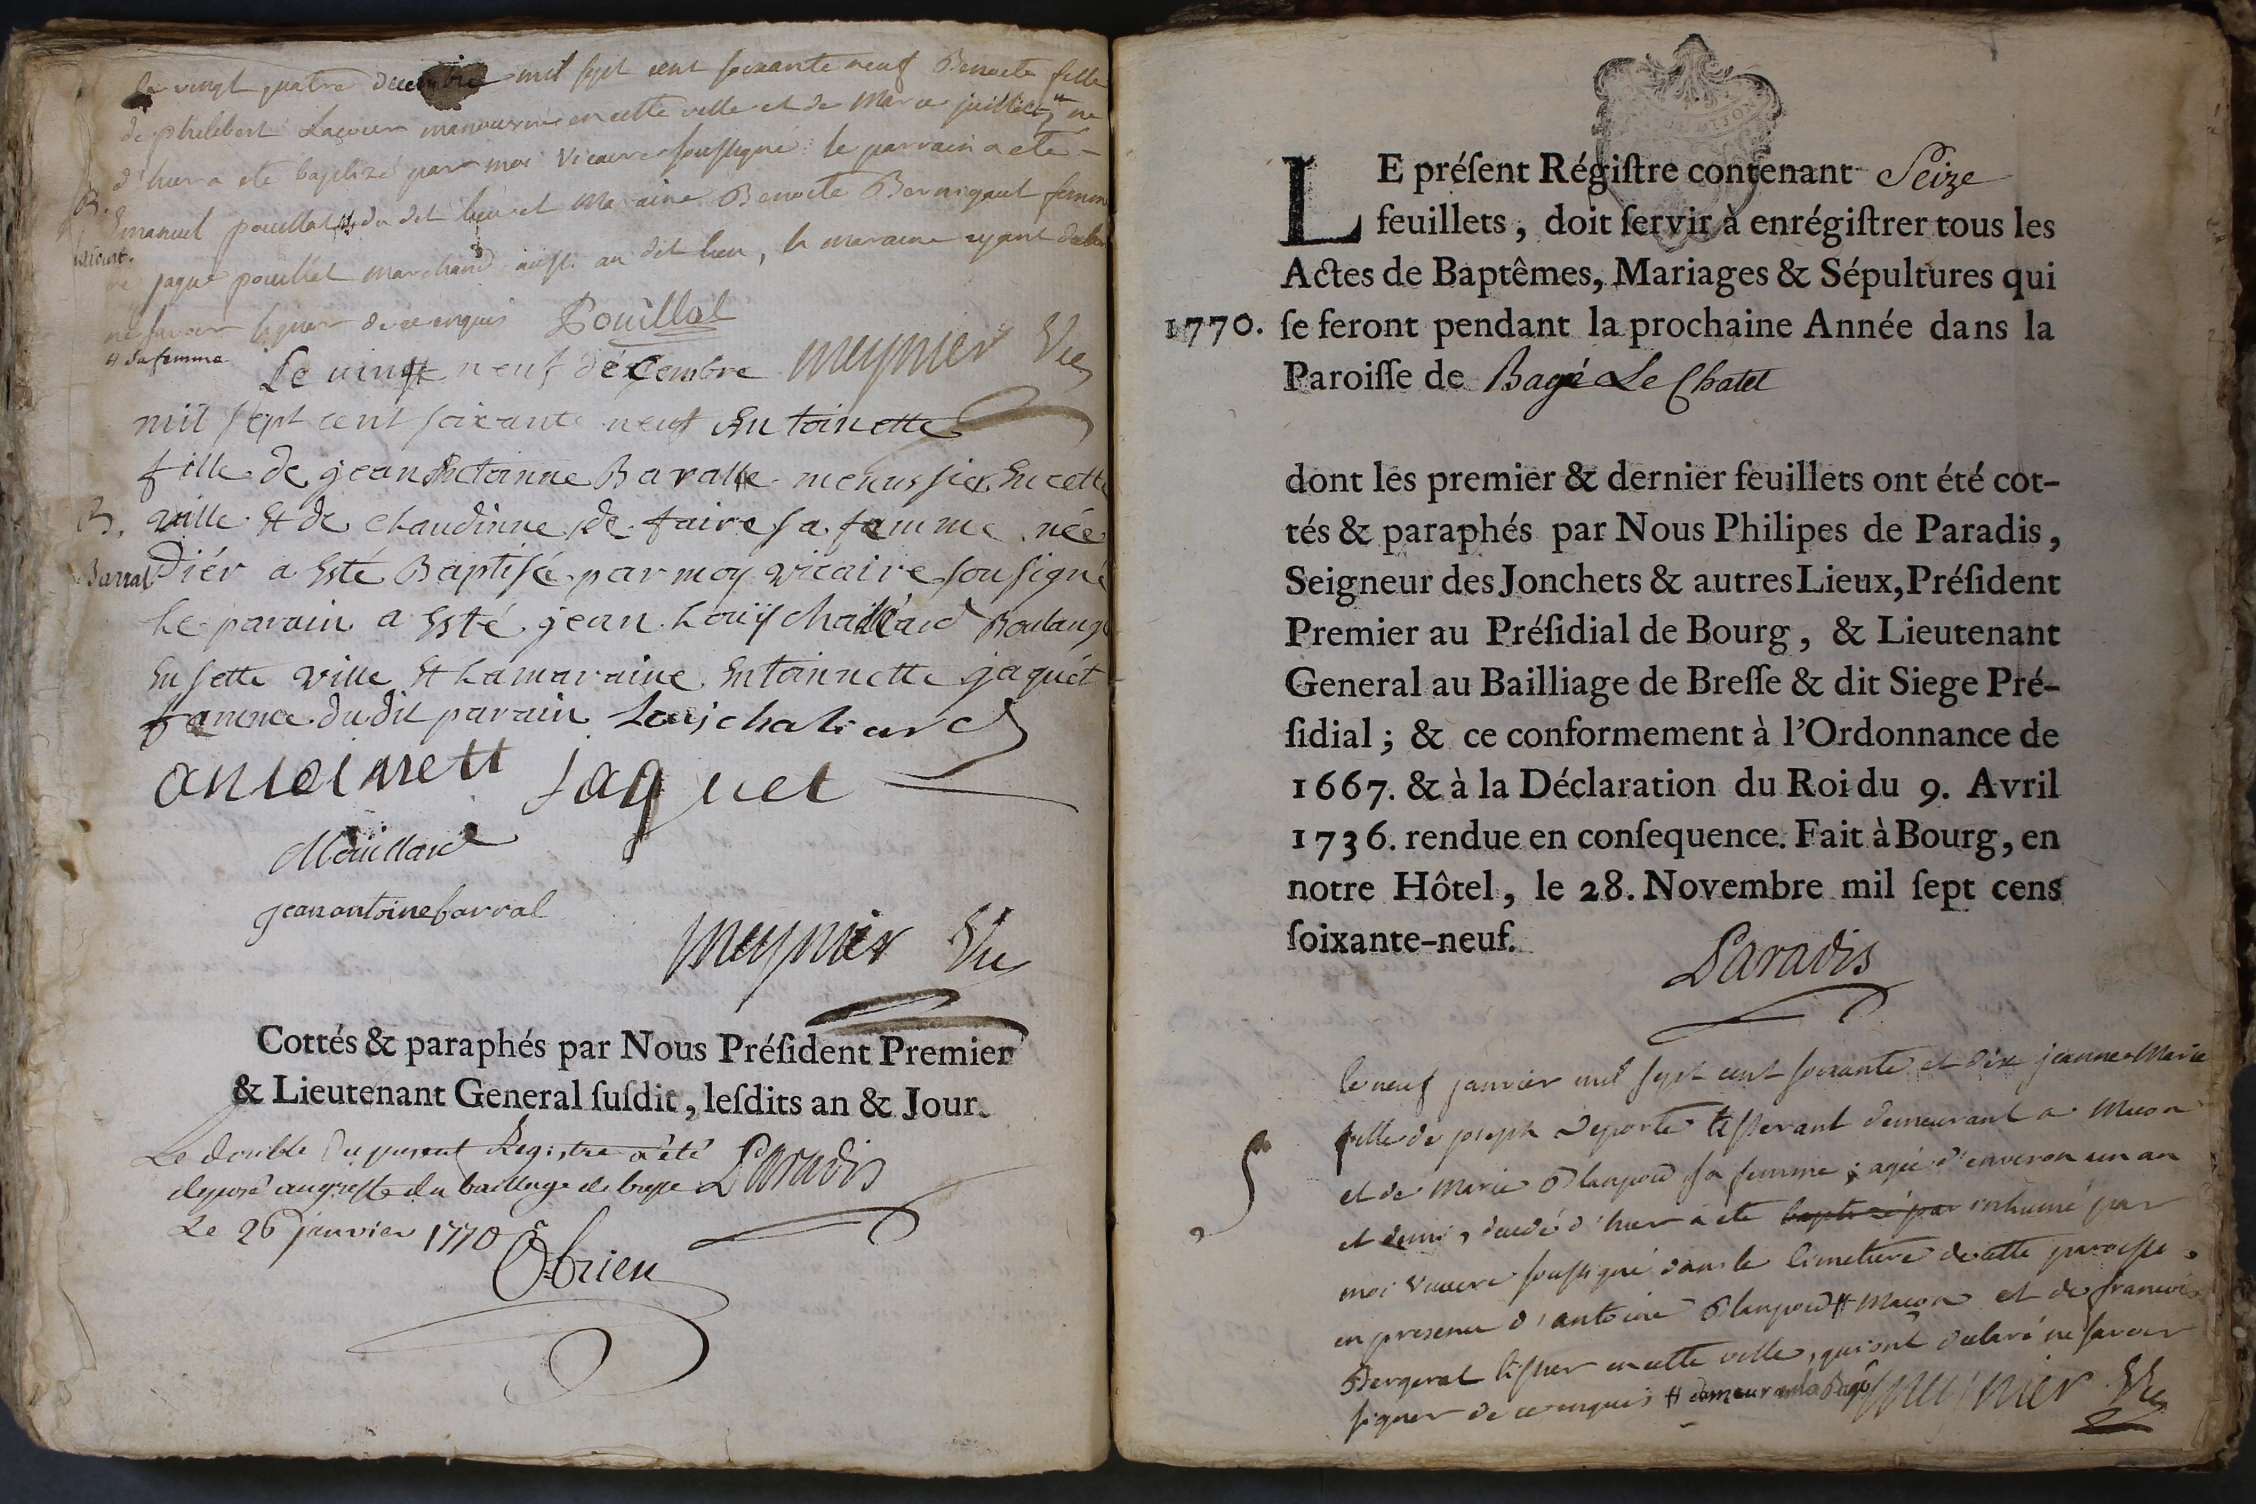 le vingt quatre decembre mil sept cent soixante neuf Benoite fille
de philibert Lacour manouvrier en cette ville et de Marie juillet # ne
d'hier a ete baptizé par moi Vicaire soussigné le parrain a ete
B. Emanuel pouillat du dit lieu et Maraine Benoite Bernigaut femme
de jaque pouillat marchand aussi au dit lieu, la maraine ayant declaré
ne savoir signer de ce enquis Pouillat
# sa femme
meynier Vic
Le vingt neuf décembre
mil sept cent soixante neuf Entoinette
fille de jean Entoinne Baralle menussier En cette
B. ville Et de claudinne de faire sa famme née
Barral
Diér a Esté Baptisée par moy vicaire sousigné
Le parain a Esté jean Louÿ chaillard Boulangé
En sette ville Et La maraine Entoinnette jaquét
famme du dit parain Louis chaliard
antoinett jaquet
Maillard
jean antoine barral
meynier Vic
Cottés & paraphés par Nous Préſident Premier
& Lieutenant General ſuſdit, leſdits an & Jour.
Le double du present Registre a été
deposé au greffe du bailliage de bresse
Le 26 janvier 1770
Paradis
Obrien
LE préſent Régiſtre contenant Seize
feuillets, doit ſervir à enrégiſtrer tous les
Actes de Baptêmes, Mariages & Sépultures qui
1770. ſe feront pendant la prochaine Année dans la
Paroiſſe de Bagé Le Chatel
dont les premier & dernier feuillets ont été cot-
tés & paraphés par Nous Philipes de Paradis,
Seigneur des Jonchets & autres Lieux, Préſident
Premier au Préſidial de Bourg, & Lieutenant
General au Bailliage de Breſſe & dit Siege Pré-
ſidial; & ce conformement à l'Ordonnance de
1667. & à la Déclaration du Roi du 9. Avril
1736. rendue en conſequence. Fait à Bourg, en
notre Hôtel, le 28. Novembre mil ſept cens
ſoixante-neuf.
Paradis
le neuf janvier mil sept cent soixante et dix jeanne Marie
fille de joseph Deporte tisserant demeurant a Macon
et de Marie Blanpoid sa femme, agée d'environ un an
et demi, decedé d'hier a ete baptizé par inhumé par
moi Vicaire soussigné dans le Cimetiere de cette paroisse
en presence d'antoine Blanpoid # Maçon et de francois
Bergerat tissier en cette ville, qui ont declaré ne savoir
signer de ce enquis # demeurant a Bagé meynier Vic